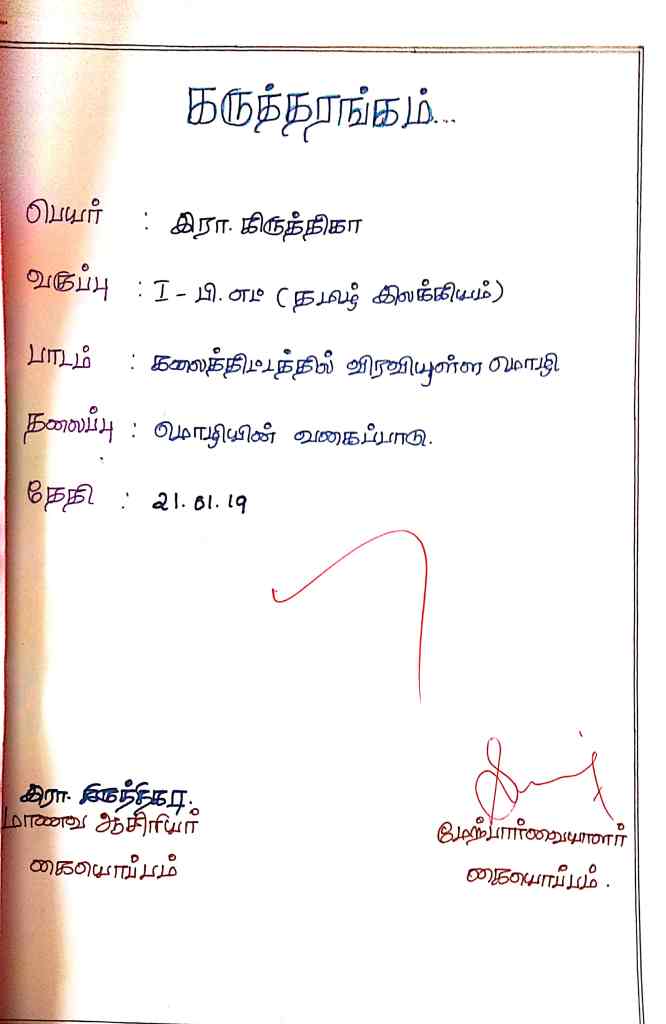 கருத்தரங்கம்...
பெயர் : இரா. கிருத்திகா
வகுப்பு : I - பி.எட் (தமிழ் இலக்கியம்)
பாடம் : கலைத்திட்டத்தில் விரவியுள்ள மொழி
தலைப்பு : மொழியின் வகைப்பாடு.
தேதி : 21.01.19
இரா. கிருத்திகா.
மாணவ ஆசிரியர் மேற்பார்வையாளர்
கையொப்பம் கையொப்பம்.